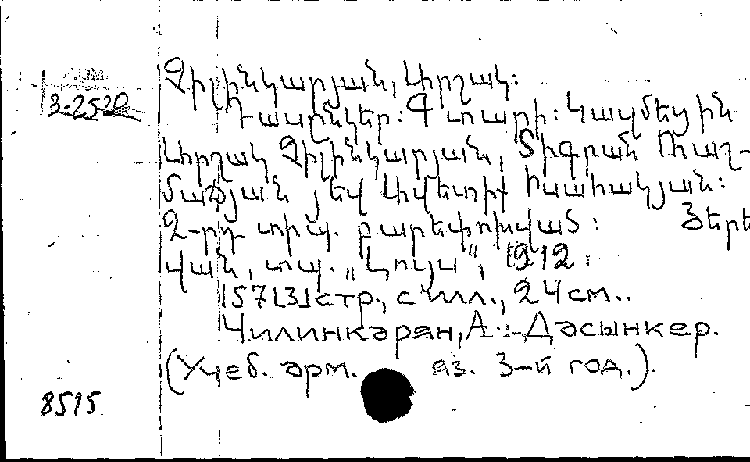 Չիլինկարյան, Արշակ:
3-2520
Դասընկեր: Գ տարի: Կազմեցին
Արշակ Չիլինկարյան, Տիգրան Ռաշ-
մաճյան յեվ Ավետիք Իսահակյան:
2-րդ տիպ. բարեփոխված: Յերե
վան, տպ. „Լույս", 1912:
157[3]стр., с илл., 24см..
Чилинкарян, А. Дасынкер.
(Учеб. арм. яз. 3-й год.).
8515